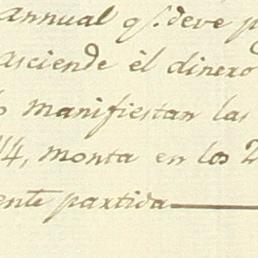 annual q.e deve p
asciende él dinero
manifiestan las
4, monta en los 2
ente partida